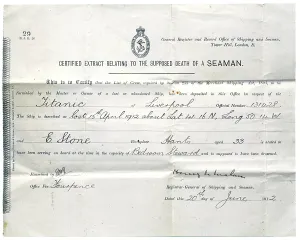 29
General Register and Record Office of Shipping and Seamen,
Tower Hill, London, E.
CERTIFIED EXTRACT RELATING TO THE SUPPOSED DEATH OF A SEAMAN.
This is to Certify that the List of Crew, required by
furnished by the Master or Owner of a lost or abandoned Ship, deposited in this Office in respect of the
Titanic of Liverpool Official Number 131428.
The Ship is described as Lost 15th April 1912 about Lat 41.16 N, Long 50.14 W
and E Stone Birthplace Hants aged 33 is stated to
have been serving on board at the time in the capacity of Bedroom Steward and is supposed to have been drowned.
Office Fee Fourpence Registrar General of Shipping and Seamen.
Dated this 20th day of June 1912